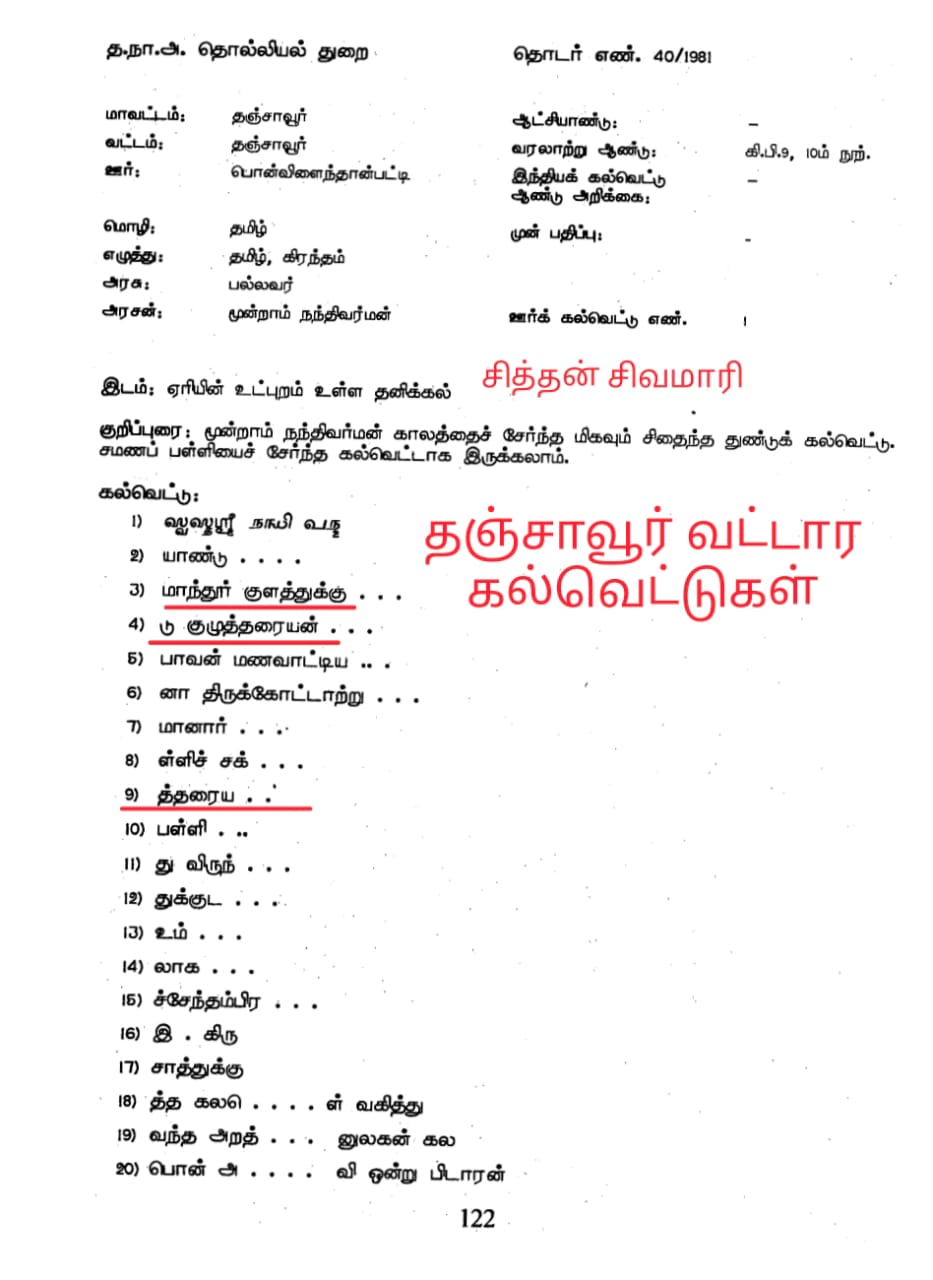 த.நா.அ. தொல்லியல் துறை
தொடர் எண். 40/1981
மாவட்டம்: தஞ்சாவூர்
வட்டம்: தஞ்சாவூர்
ஊர்: பொன்விளைந்தான்பட்டி
ஆட்சியாண்டு: –
வரலாற்று ஆண்டு: கி.பி.9, 10ம் நூற்.
இந்தியக் கல்வெட்டு –
ஆண்டு அறிக்கை:
மொழி: தமிழ்
எழுத்து: தமிழ், கிரந்தம்
அரசு: பல்லவர்
அரசன்: மூன்றாம் நந்திவர்மன்
முன் பதிப்பு: -
ஊர்க் கல்வெட்டு எண். 1
இடம்: ஏரியின் உட்புறம் உள்ள தனிக்கல்
சித்தன் சிவமாரி
குறிப்புரை: மூன்றாம் நந்திவர்மன் காலத்தைச் சேர்ந்த மிகவும் சிதைந்த துண்டுக் கல்வெட்டு.
சமணப் பள்ளியைச் சேர்ந்த கல்வெட்டாக இருக்கலாம்.
கல்வெட்டு:
தஞ்சாவூர் வட்டார
கல்வெட்டுகள்
1)
2) யாண்டு . . . .
3) மாந்தூர் குளத்துக்கு . . .
4) டு குழுத்தரையன் . . .
5) பாவன் மணவாட்டிய .. .
6) னா திருக்கோட்டாற்று . . .
7) மானார் . . .
8) ள்ளிச் சக் . . .
9) த்தரைய . .
10) பள்ளி . ..
11) து விருந் . . .
12) துக்குட . . .
13) உம் . . .
14) லாக . . .
15) ச்சேந்தம்பிர . . .
16) இ . கிரு
17) சாத்துக்கு
18) த்த கலெ . . . . ள் வகித்து
19) வந்த அறத் . . . னுலகன் கல
20) பொன் அ . . . . வி ஒன்று பிடாரன்
122